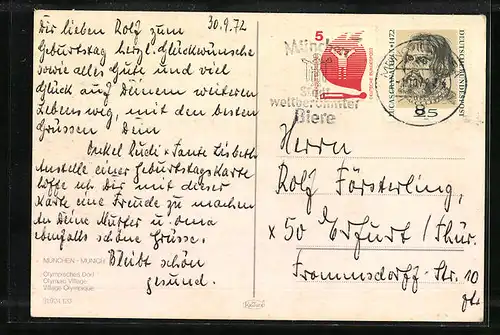 30.9.72
Dir lieben Rolf zum
Geburtstag herzl. Glückwünsche
sowie alles Gute und viel
Glück auf Deinem weiteren
Lebensweg, mit den besten
Grüssen Dein
Onkel Rudi + Tante Lisbeth
Anstelle einer Geburtstagskarte
hoffe ich Dir mit dieser
Karte eine Freude zu machen
An Deine Mutter u. Oma
ebenfalls schöne Grüsse.
Bleibt schön
gesund.
MÜNCHEN - MUNICH
Olympisches Dorf
Olympic Village
Village Olympique
5
München
Stadt
weltberühmter
Biere
DEUTSCHE BUNDESPOST
Herrn
Rolf Försterling,
x 50 Erfurt / Thür.
Trommsdorff-Str. 10
Krüger